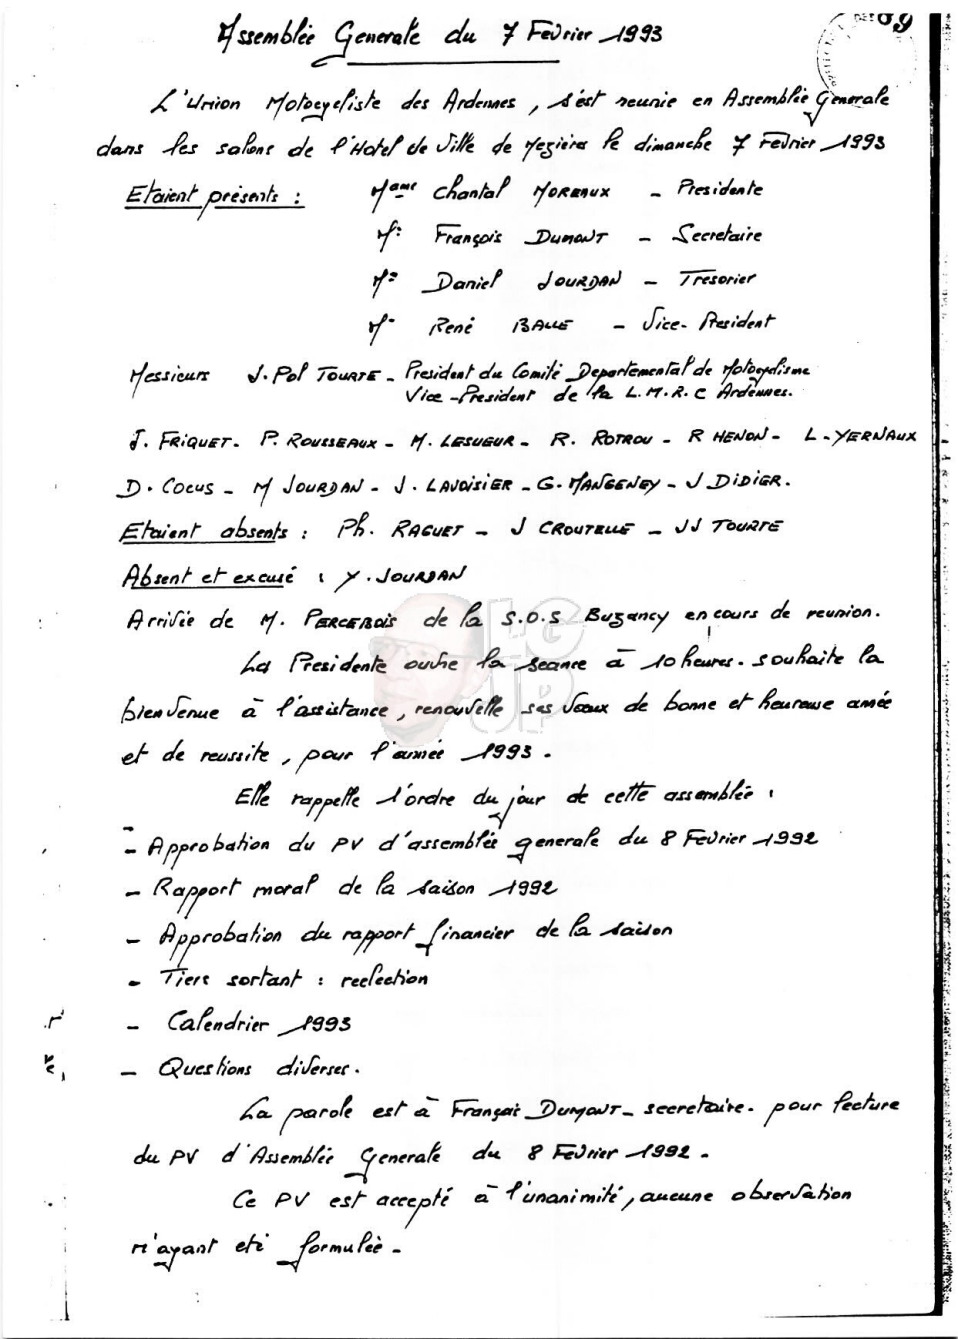 89
Assemblée Generale du 7 Fevrier 1993
L'Union Motocycliste des Ardennes, s'est reunie en Assemblée Generale
dans les salons de l'Hotel de Ville de Mezieres le dimanche 7 Fevrier 1993
Etaient présents : Mame Chantal MOREAUX - Presidente
Mr François DUMONT - Secretaire
Mr Daniel JOURDAN - Tresorier
Mr René BALLE - Vice-President
Messieurs J. Pol TOURTE - President du Comité Departemental de Motocyclisme
Vice-President de la L.M.R.C Ardennes.
J. FRIQUET - P. ROUSSEAUX - M. LESUEUR - R. ROTROU - R HENON - L. YERNAUX
D. COCUS - M JOURDAN - J. LAVOISIER - G. MANGENEY - J DIDIER.
Etaient absents : Ph. RAGUET - J CROUTELLE - JJ TOURTE
Absent et excusé : Y. JOURDAN
Arrivée de M. PERCEBOIS de la S.O.S Buzancy en cours de reunion.
La Presidente ouvre la seance à 10 heures. souhaite la
bienvenue à l'assistance, renouvelle ses voeux de bonne et heureuse année
et de reussite, pour l'année 1993.
Elle rappelle l'ordre du jour de cette assemblée :
- Approbation du PV d'assemblée generale du 8 Fevrier 1992
- Rapport moral de la saison 1992
- Approbation du rapport financier de la saison
- Tiers sortant : reelection
- Calendrier 1993
- Questions diverses.
La parole est à François DUMONT - secretaire. pour lecture
du PV d'Assemblée Generale du 8 Fevrier 1992.
Ce PV est accepté à l'unanimité, aucune observation
n'ayant eté formulée.
LG
UP